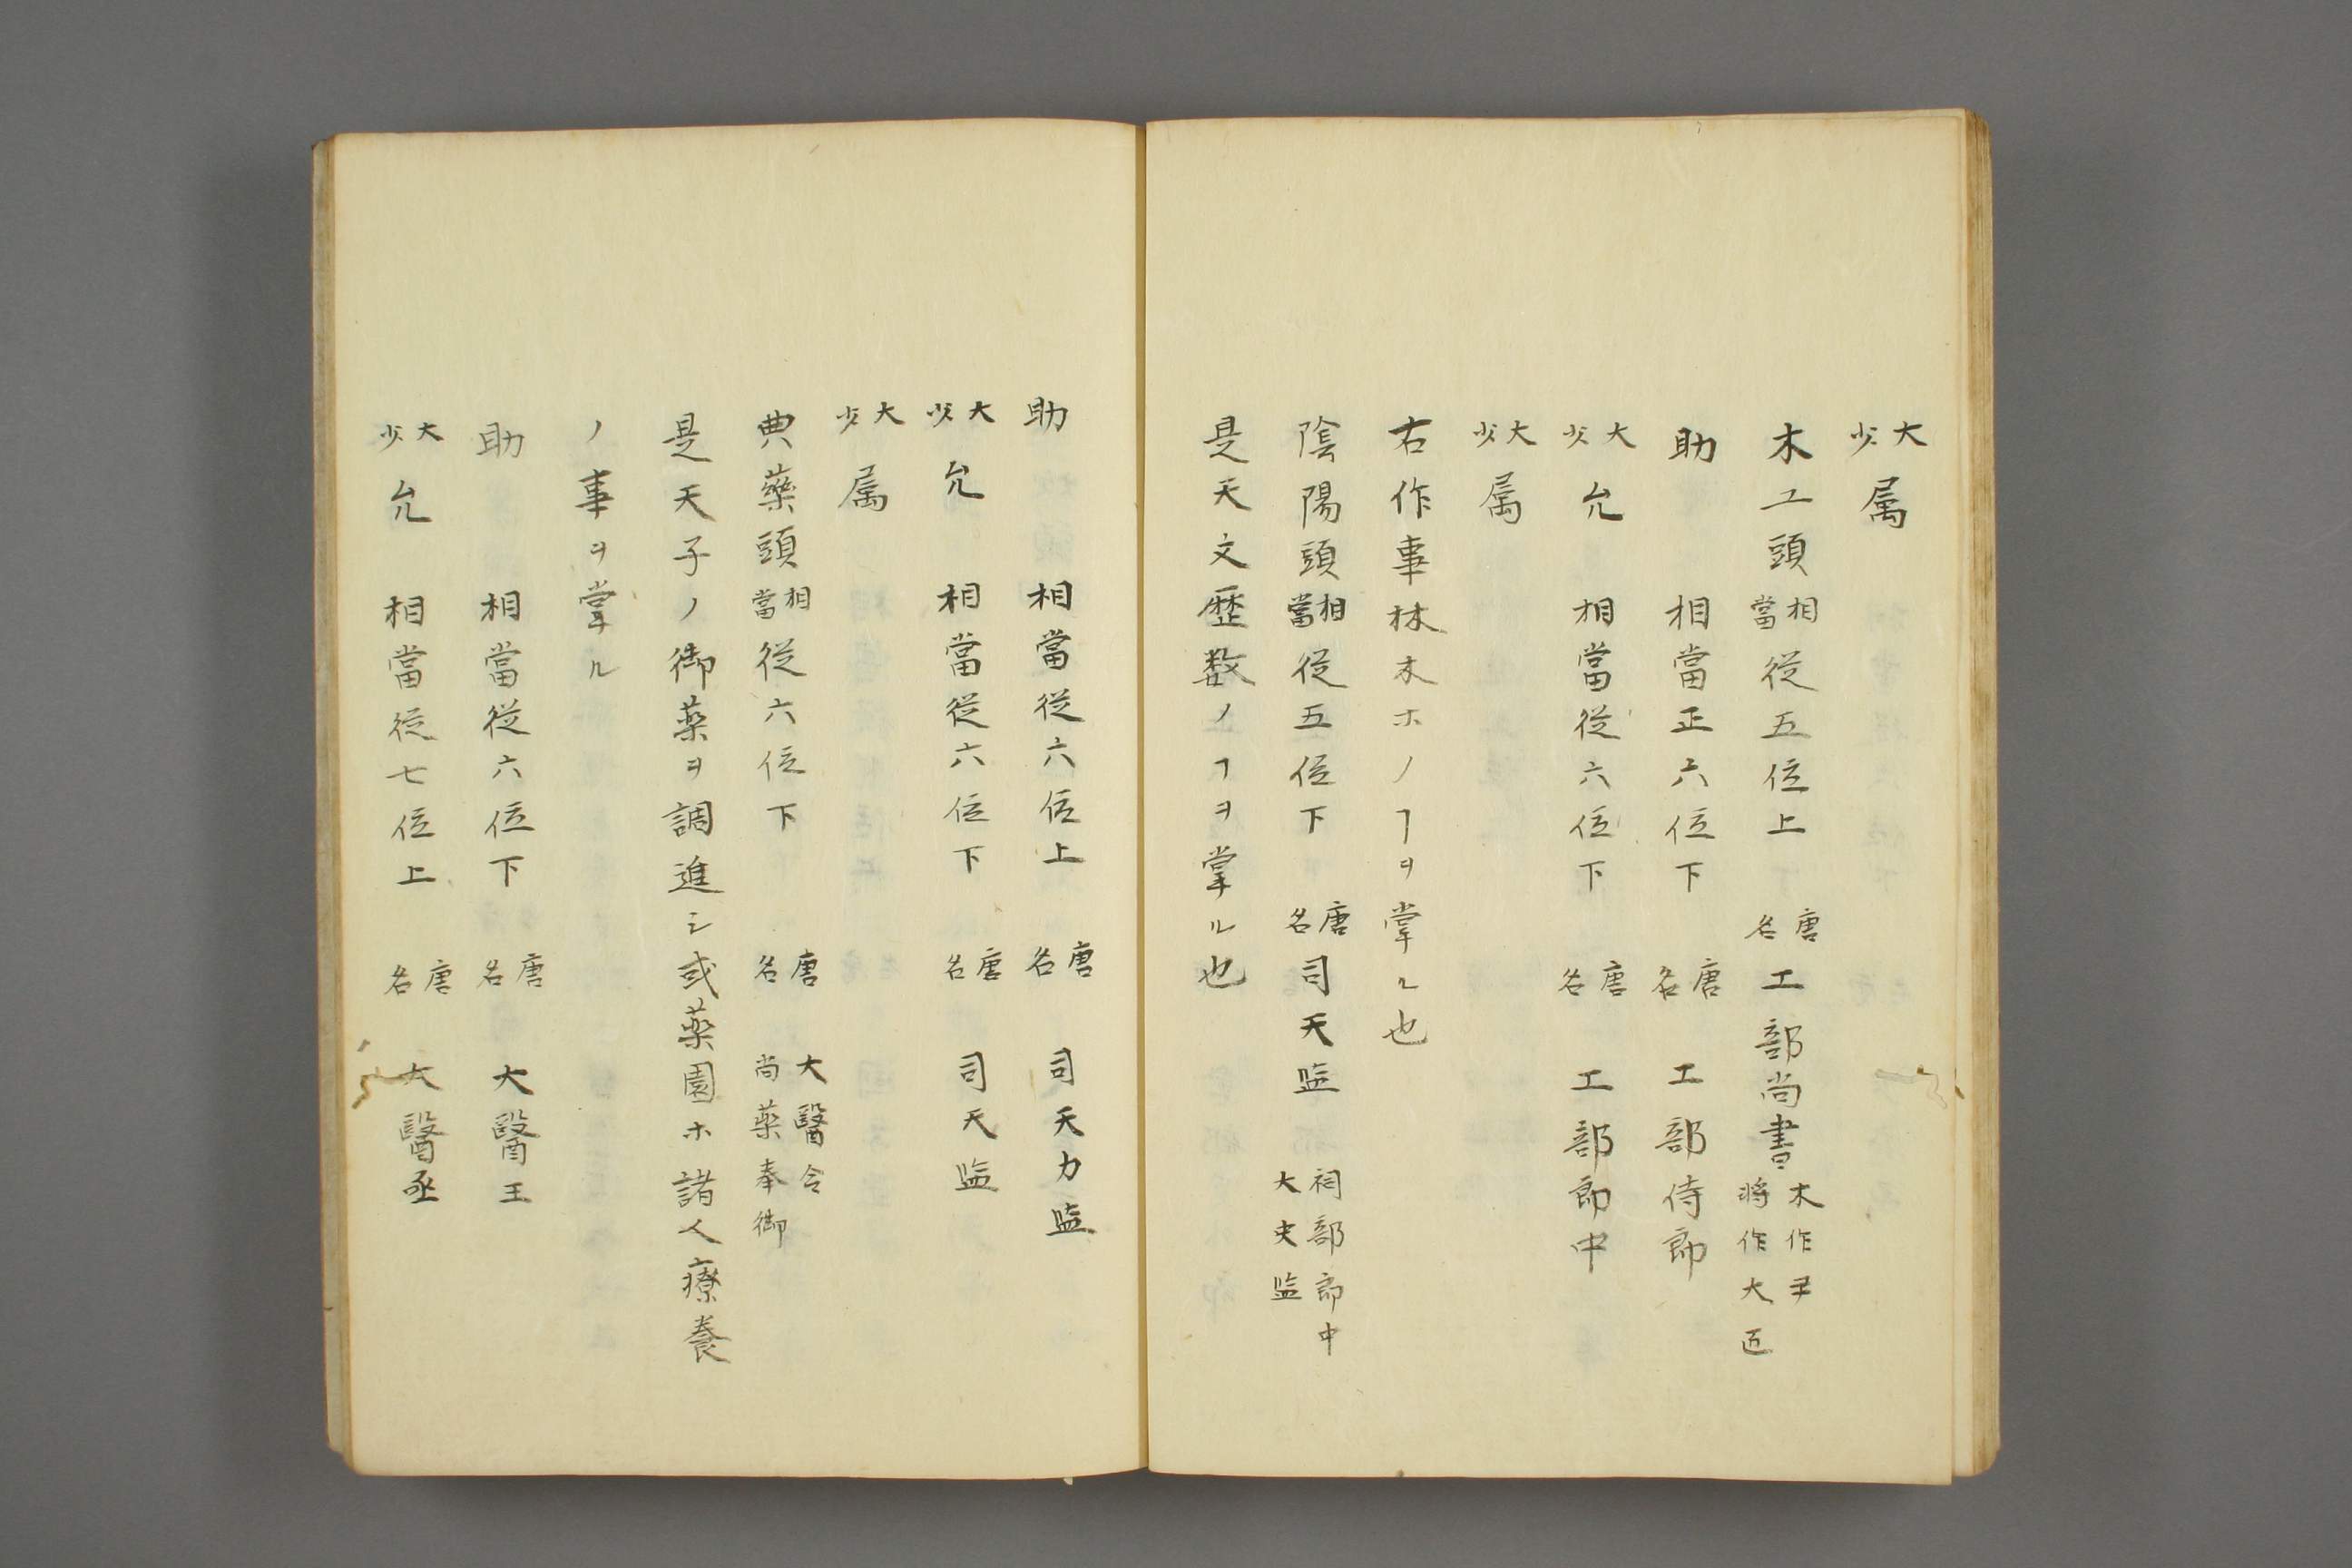 大少属
木工頭相當従五位上 唐名工部尚書木作尹将作大匠
助 相當正六位下 唐名 工部侍郎
大少允 相當従六位下 唐名 工部郎中
大少属
右作事林木ホノヿヲ掌ル也
陰陽頭相當従五位下 唐名司天監 祠部郎中大夫監
是天文歴数ノヿヲ掌ル也
助 相當従六位上 唐名 司天力監
大少允 相當従六位下 唐名 司天監
大少属
典藥頭相當従六位下 唐名 大醫令尚薬奉御
是天子ノ御薬ヲ調進シ或薬園ホ諸人療養
ノ事ヲ掌ル
助 相當従六位下 唐名 大醫王
大少允 相當従七位上 唐名 大醫丞